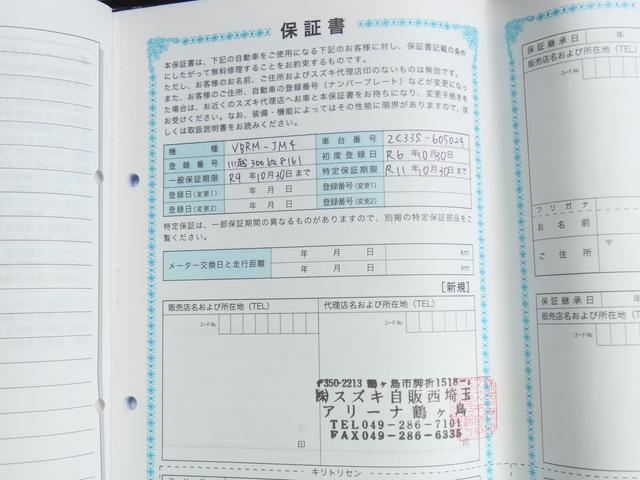 保証書
本保証書は、下記の自動車をご使用になる下記のお客様に対し、保証書記載の条件
にしたがって無料修理することをお約束するものです。
ただし、お客様のお名前、ご住所およびスズキ代理店印のないものは無効です。
また、お客様のご住所、自動車の登録番号（ナンバープレート）などが変更になっ
た場合は、お近くのスズキ代理店へお車と本保証書をお持ちになり、変更手続きを
お受けください。なお、装備・機能によってはその性能に限界がありますので、詳
しくは取扱説明書をお読みください。
機種 VBRM-JM4 車台番号 ZC33S-605024
登録番号 川越 306 8161 初度登録日 R6年10月30日
一般保証期限 R9年10月30日まで 特定保証期限 R11年10月30日まで
登録日(変更1) 年 月 日 登録番号(変更1)
登録日(変更2) 年 月 日 登録番号(変更2)
特定保証は、一部保証期間の異なるものがありますので、別掲の特定保証部品をご
覧ください。
メーター交換日と走行距離 年 月 日 km
年 月 日 km
［新規］
販売店名および所在地（TEL） 代理店名および所在地（TEL）
コードNo. コードNo.
〒350-2213 鶴ヶ島市脚折1518-
㈱スズキ自販西埼玉
アリーナ鶴ヶ島
TEL049-286-7101
FAX049-286-6335
印 印
キリトリセン
保証継承日 年
販売店名および所在地（TEL
コードNo.
フリガナ
お名前
ご住所 〒
保証継承日 年
販売店名および所在地（TEL
コードNo.